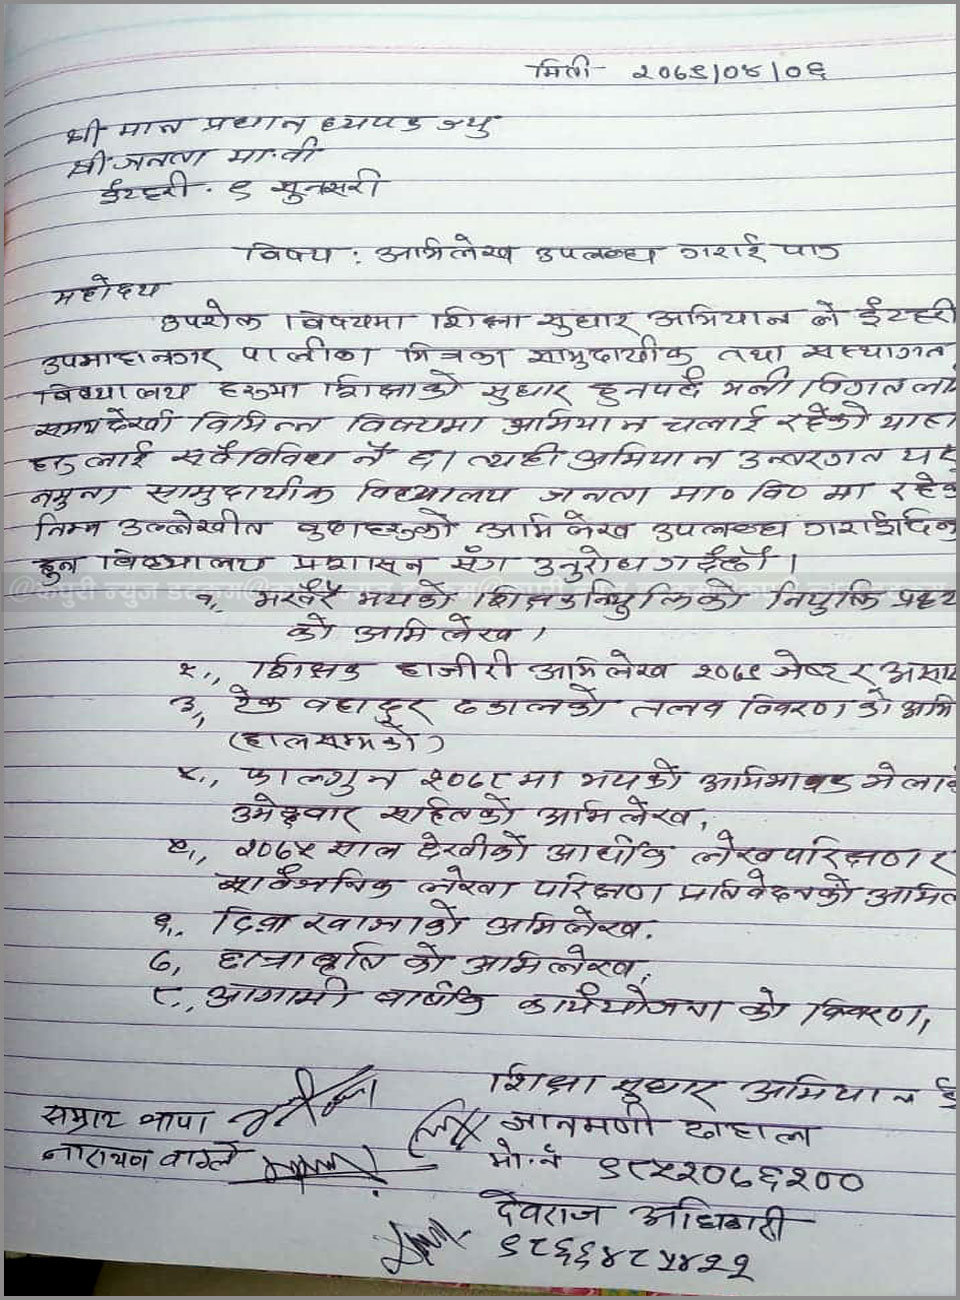 मिती २०७९/०४/०६
श्री मान प्रधान ध्यापक ज्यु
श्री जनता मा.वी
ईटहरी . ९ सुनसरी
विषय : अभिलेख उपलब्ध गराई पाउ
महोदय
उपरोक्त विषयमा शिक्षा सुधार अभियान ले ईटहरी
उपमाहानगर पालीका भित्रका सामुदायीक तथा सस्थागत
विद्यालय हरुमा शिक्षाको सुधार हुनपर्छ भनी विगत लामो
समयदेखी विभिन्न विषयमा अभियान चलाई रहेको याहा
हरु लाई सर्वविविध नै छ। त्यही अभियान अन्तरगत यस
नमुना सामुदायीक विद्यालय जनता मा० वि० मा रहेको
निम्न उल्लेखीत कुराहरुको अभिलेख उपलब्ध गराईदिनु
हुन विद्यालय प्रशासन सँग अनुरोध गर्दछौं।
१., भरखरै भयको शिक्षक नियुक्तिको नियुक्ति प्रक्रया
को अभिलेख।
२., शिक्षक हाजीरी अभिलेख २०७९ जेष्ट र असार
३., टेक वहादुर ढकालको तलव विवरण को अभि
(हालसम्मको)
४., फाल्गुन २०७८ मा भयको अभिभावक भेलाको
उमेद्वार सहितको अभिलेख,
५., २०७५ साल देखीको आर्थीक लेखापरिक्षण र
सार्वजनिक लेखा परिक्षण प्रतिवेदनको अभिले
६., दिवा खाजाको अभिलेख.
७, छात्रावृति को अभिलेख,
८., आगामी वार्षीक कार्ययोजना को विवरण,
शिक्षा सुधार अभियान ई
सम्राट थापा
ज्ञानमणी दाहाल
नारायण वाग्ले
मो.नं ९८५२०७६२००
देवराज अधिकारी
९८६६४८५४२२